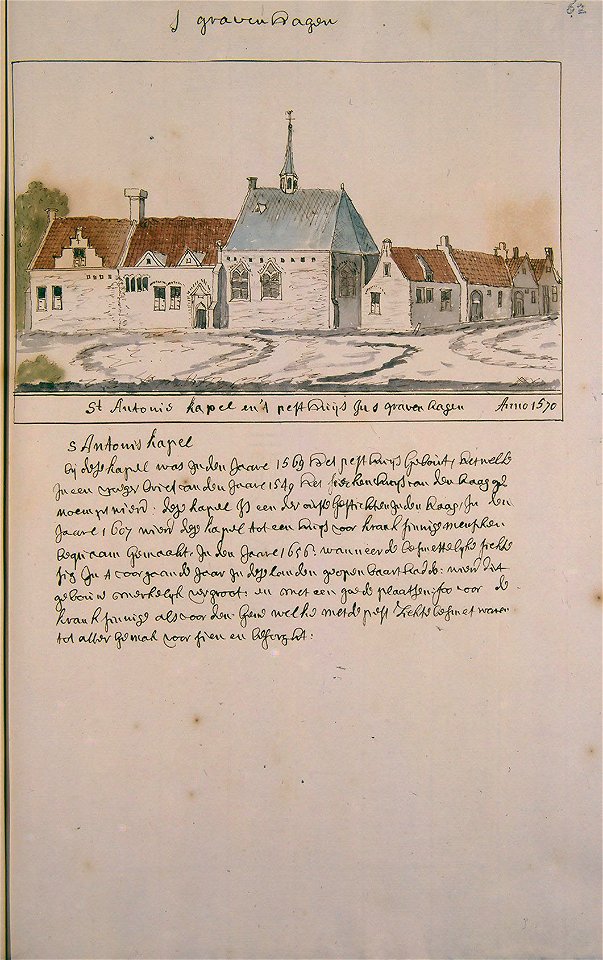 s gravenhagen
62
St Antonis kapel en't pest huijs In s gravenhagen Anno 1570
s Antonis kapel
bij deze kapel was In den Jaare 1569 het pest huijs gebout, het welke
In een vroeger brief van den Jaare 1549 het sieken huijs van den haag ge
noempt wiert. deze kapel Is een der oudste gestichten In den haag, In den
Jaare 1607 wiert deze kapel tot een huijs voor krankzinnige menschen
bequaam gemaakt. In den Jaare 1656. wanneer de besmettelijke siekte
zig In 't voorgaande Jaar In deze landen geopenbaart hadde: wiert dit
gebouw merkelyk vergroot: en met een goede plaatsen, so voor de
krankzinnige als voor den gene welke met de pest ziekte besmet waren
tot aller gemak voorsien en besorght.